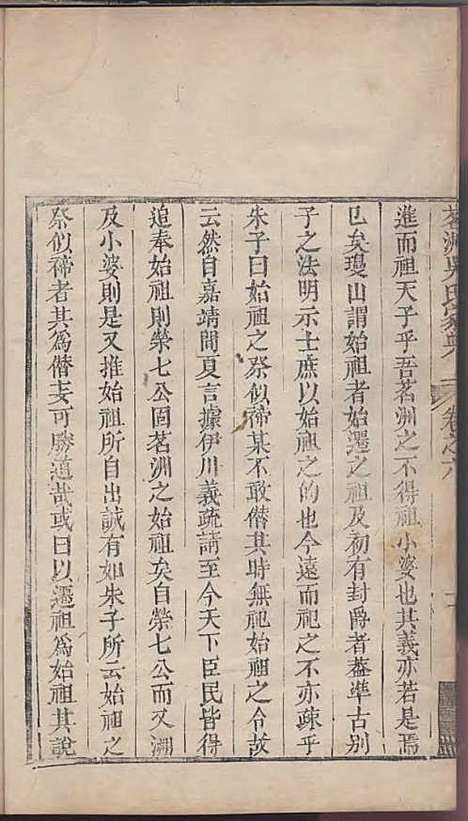 茗洲吳氏家典 卷之六
進而祖天子乎吾茗洲之不得祖小婆也其義亦若是焉
已矣瓊山謂始祖者始遷之祖及初有封爵者蓋準古別
子之法明示士庶以始祖之的也今遠而祀之不亦疎乎
朱子曰始祖之祭似禘某不敢僭其時無祀始祖之令故
云然自嘉靖間夏言據伊川義疏請至今天下臣民皆得
追奉始祖則榮七公固茗洲之始祖矣自榮七公而又溯
及小婆則是又推始祖所自出誠有如朱子所云始祖之
祭似禘者其為僭妄可勝道哉或曰以遷祖為始祖其說